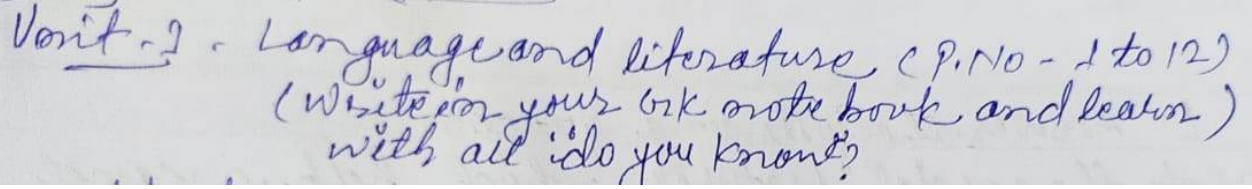 Unit-1. Language and literature (P.No - 1 to 12)
(Write in your G.K note book and learn)
with all 'do you know'?